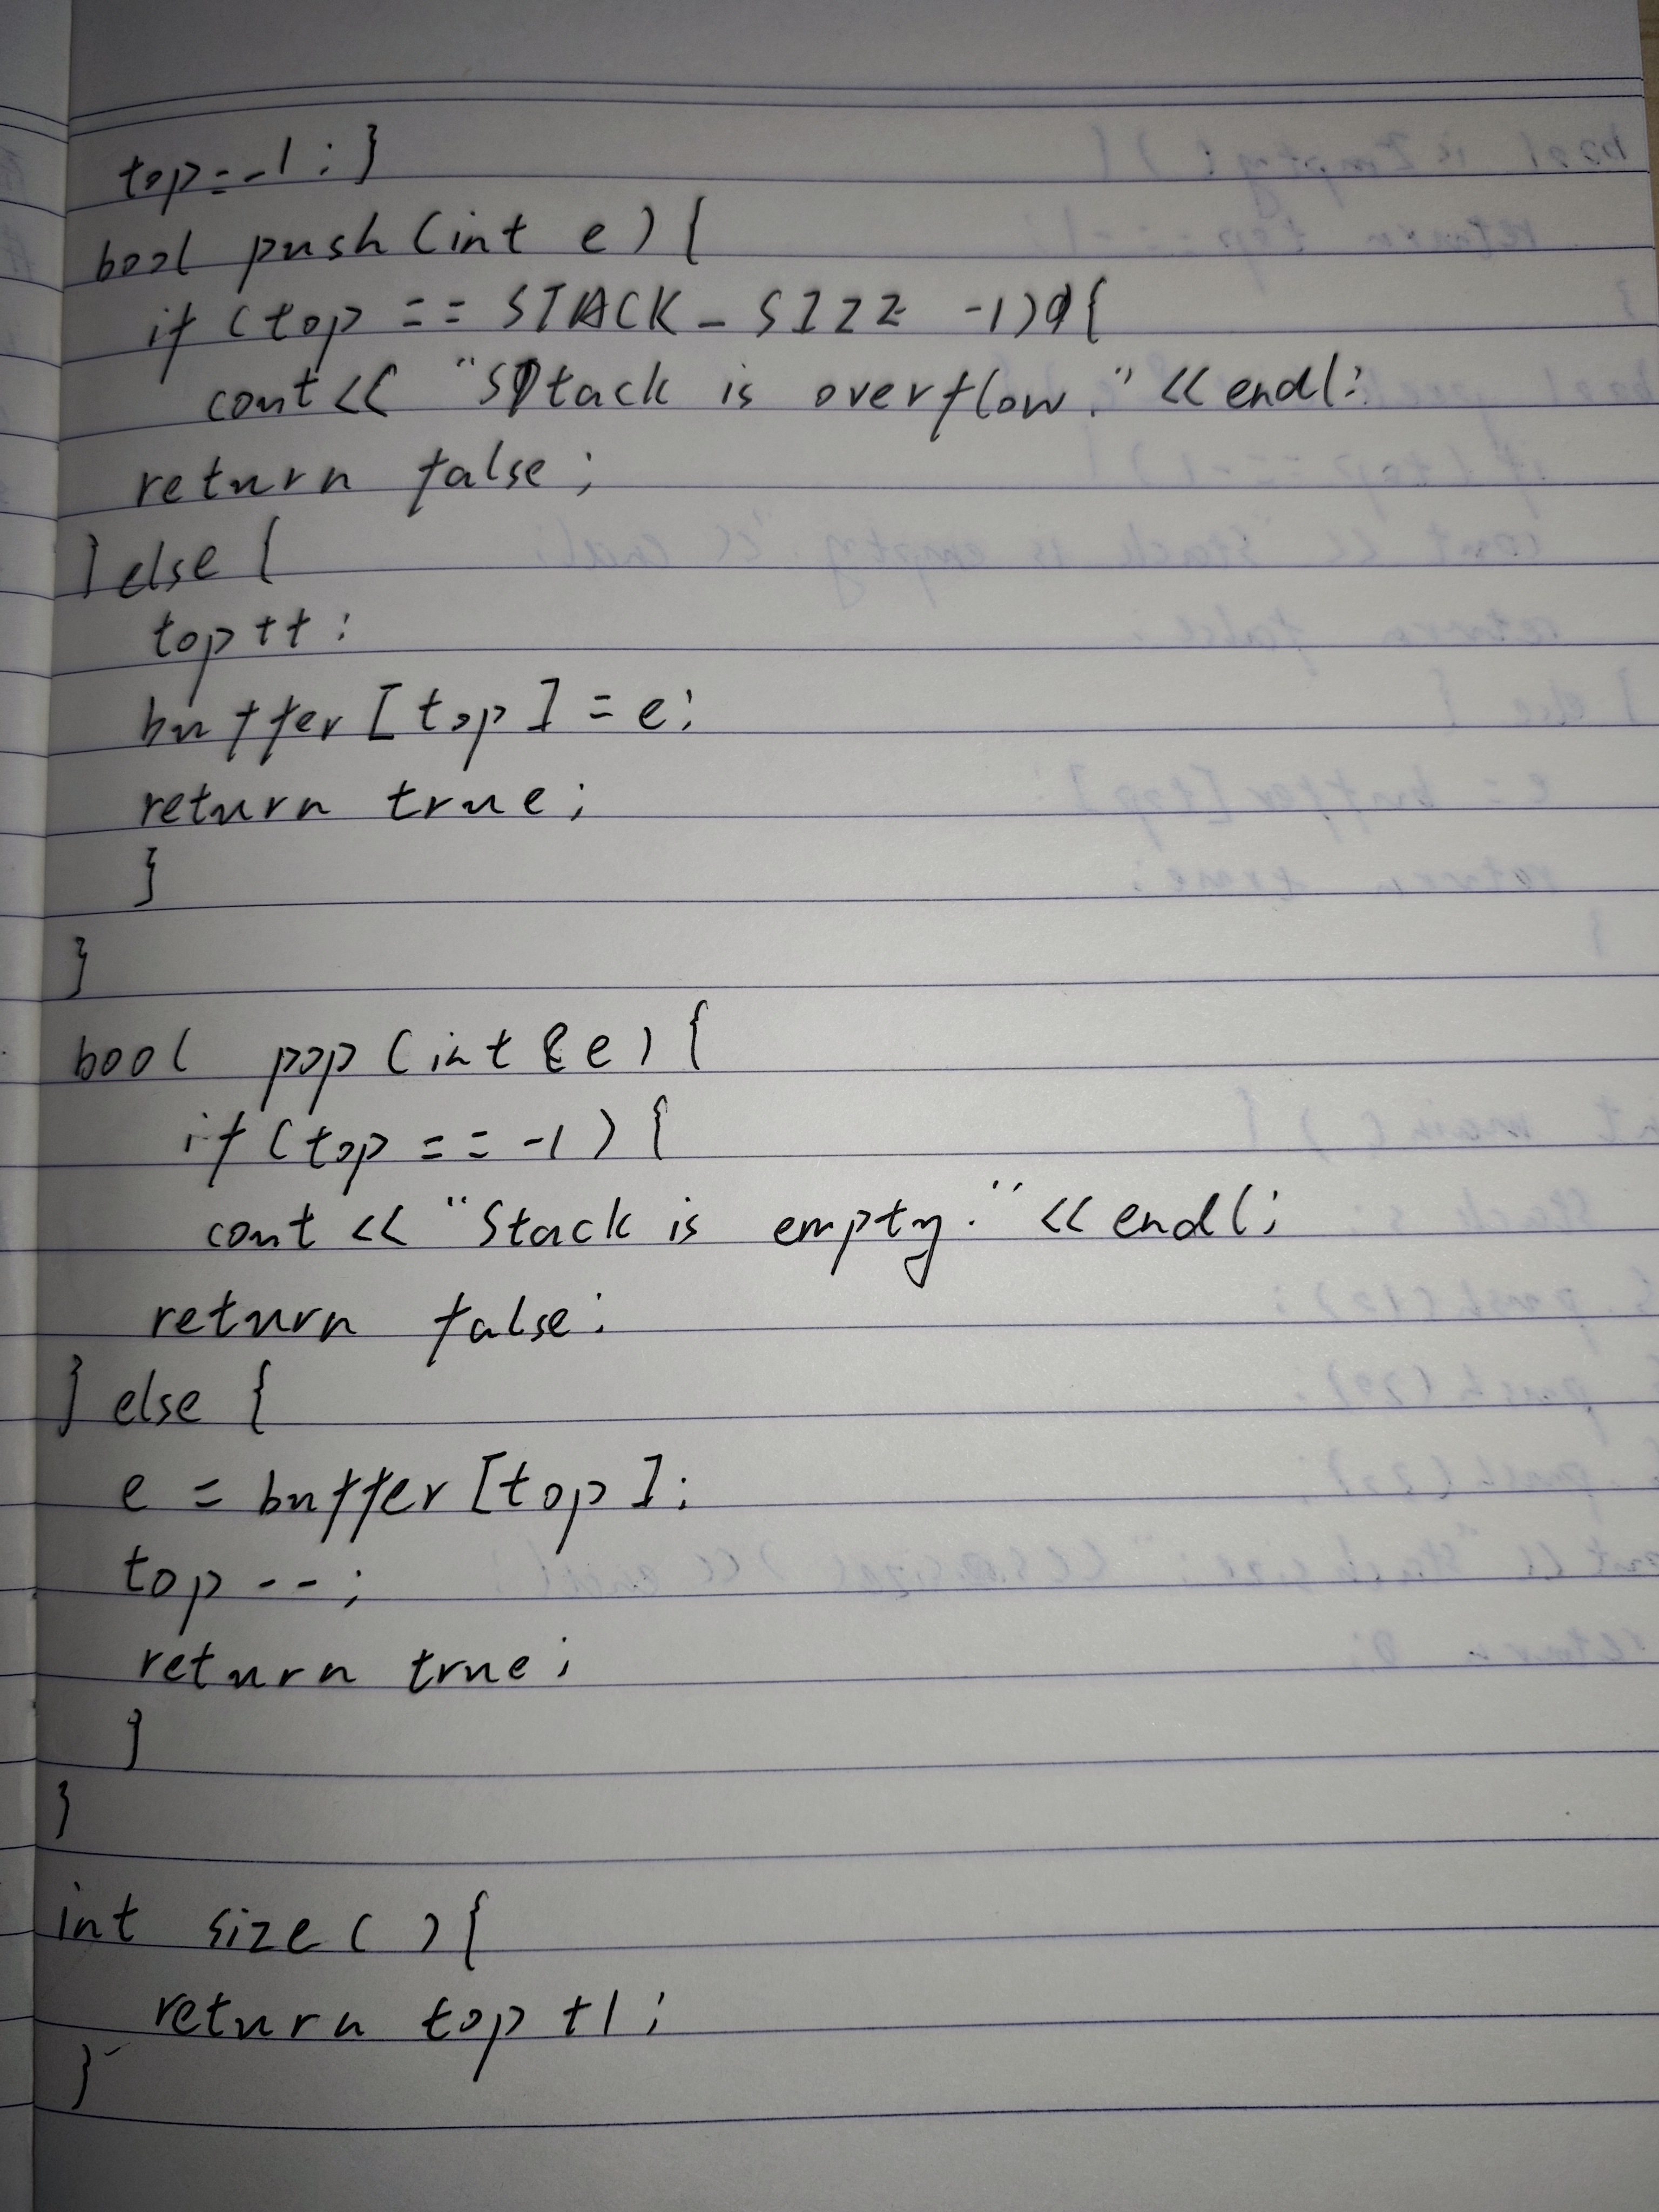 top=-1;}
bool push(int e){
if (top == STACK_SIZZ -1){
cout<< "Stack is overflow." << endl;
return false;
}else{
top++;
buffer[top]=e;
return true;
}
}
bool pop(int &e){
if(top == -1){
cout << "Stack is empty." << endl;
return false;
} else {
e = buffer[top];
top--;
return true;
}
}
int size(){
return top+1;
}